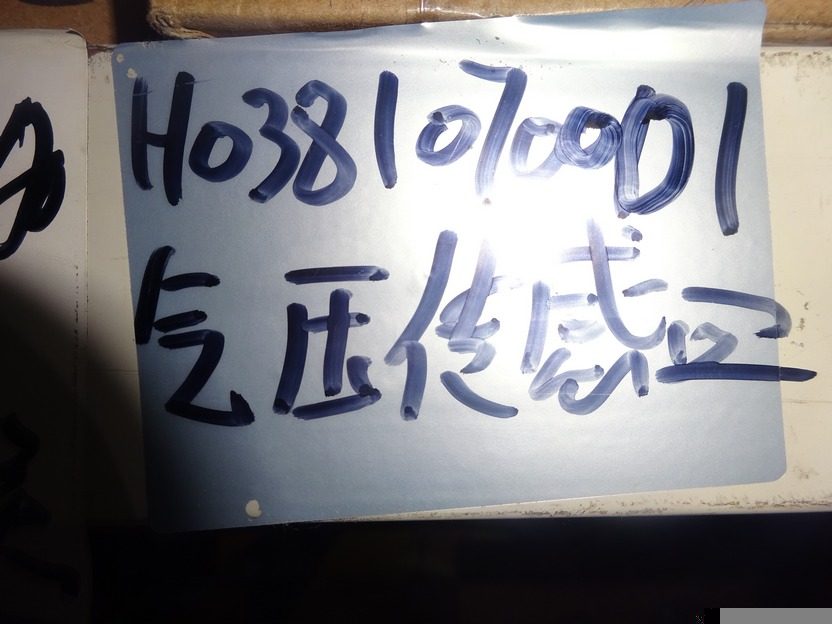 H038107000D1
气压传感器